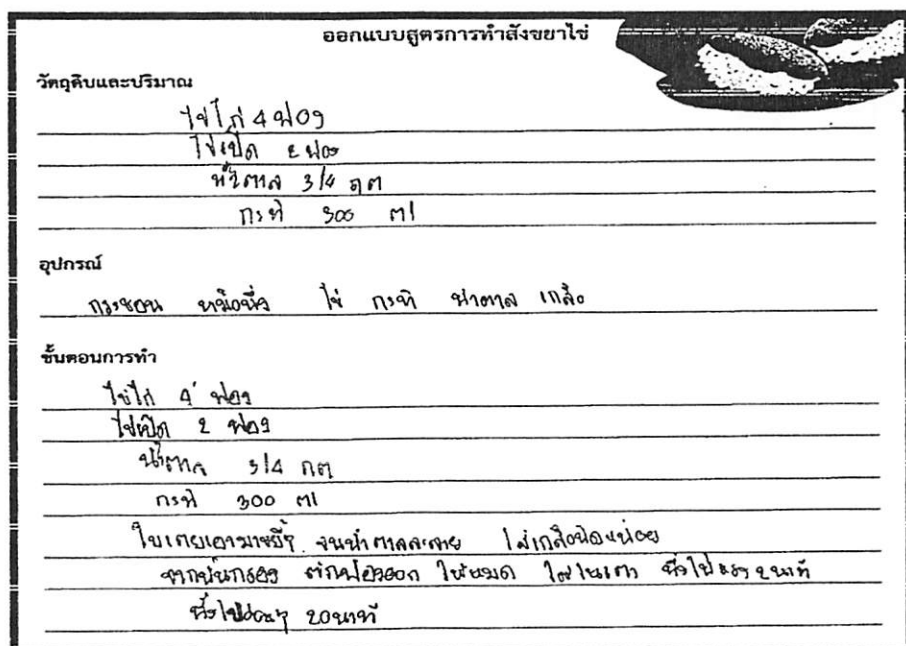 ออกแบบสูตรการทำสังขยาไข่
วัตถุดิบและปริมาณ
ไข่ไก่ 4 ฟอง
ไข่เป็ด 2 ฟอง
น้ำตาล 3/4
กะทิ 300 ml
อุปกรณ์
กระชอน หม้อนึ่ง ไข่ กะทิ น้ำตาล เกลือ
ขั้นตอนการทำ
ไข่ไก่ 4 ฟอง
ไข่เป็ด 2 ฟอง
น้ำตาล 3/4
กะทิ 300 ml
ใบเตยเอามาขยี้ๆ จนน้ำตาลละลาย ใส่เกลือนิดหน่อย
จากนั้นกรอง ตักฟองออก ให้หมด นึ่งไฟแรง 2 นาที
นึ่งไฟอ่อนๆ 20 นาที